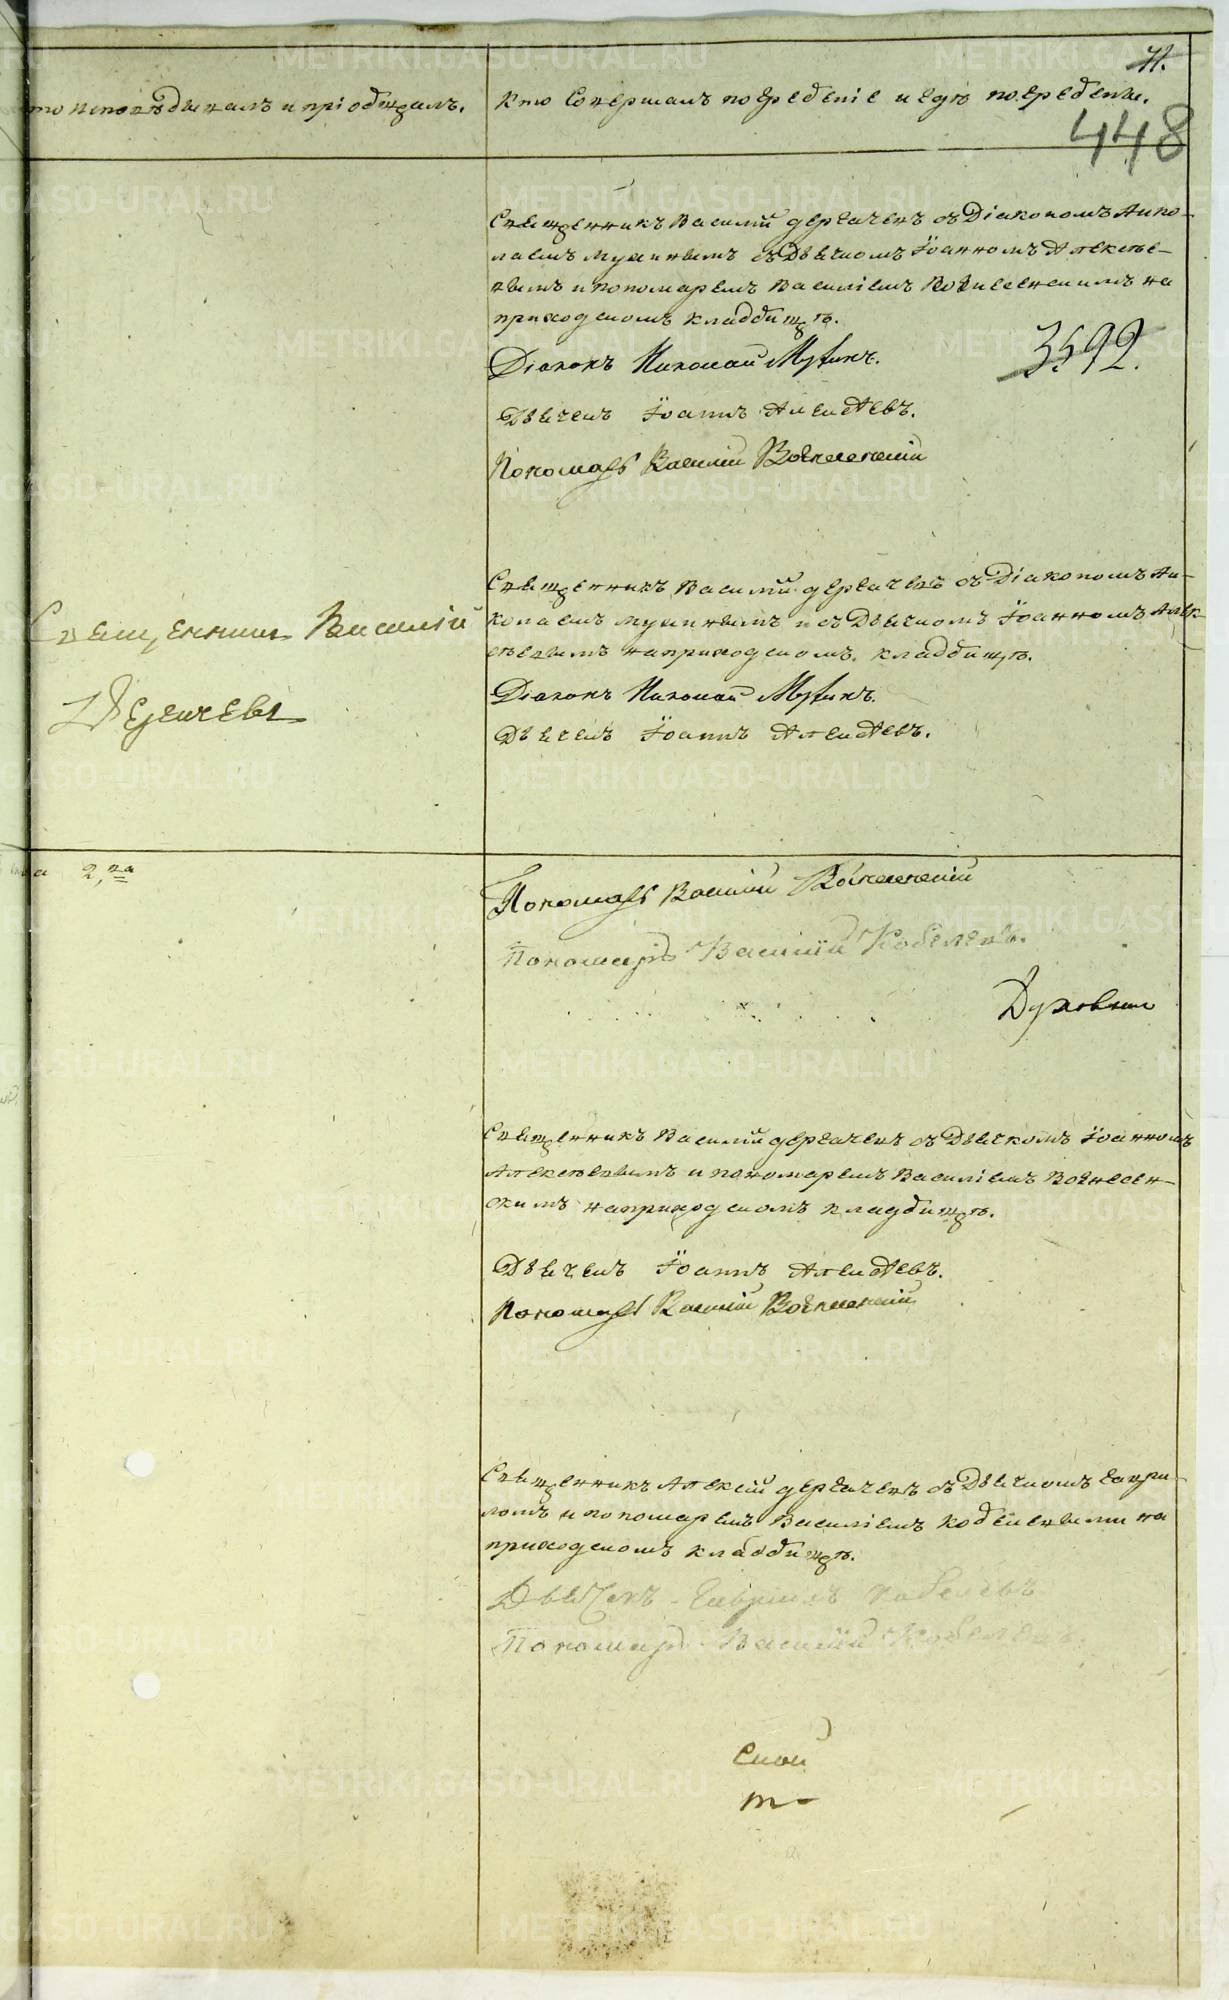 71.
448
кто исповѣдывалъ и пріобщалъ.
Кто Совершалъ погребеніе и гдѣ погребены.
Священникъ Василій Дергачевъ съ Діакономъ Нико-
лаемъ Мутинымъ съ Дьячкомъ Іоанномъ Алексѣе-
вымъ и пономаремъ Василіемъ Вознесенскимъ на
приходскомъ кладбищѣ.
3592.
Діаконъ Николай Мутинъ.
Дьячекъ Іоаннъ Алексѣевъ.
Пономарь Василій Вознесенскій
Священникъ Василій Дергачевъ съ Діакономъ Ни-
колаемъ Мутинымъ и съ Дьячкомъ Іоанномъ Алек-
сѣевымъ на приходскомъ кладбищѣ.
Священникъ Василій
Дергачевъ
Діаконъ Николай Мутинъ.
Дьячекъ Іоаннъ Алексѣевъ.
2,ка
Пономарь Василій Вознесенскій
Пономарь Василій Кобелевъ.
Духовны
Священникъ Василій Дергачевъ съ Дьячкомъ Іоанномъ
Алексѣевымъ и пономаремъ Василіемъ Вознесен-
скимъ на приходскомъ кладбищѣ.
Дьячекъ Іоаннъ Алексѣевъ.
Пономарь Василій Вознесенскій
Священникъ Алексѣй Дергачевъ съ Дьячкомъ Гаври-
ломъ и пономаремъ Василіемъ Кобелевыми на
приходскомъ кладбищѣ.
Дьячекъ Гавріилъ Кобелевъ
Пономарь Василій Кобелевъ.
ской
METRIKI.GASO-URAL.RU